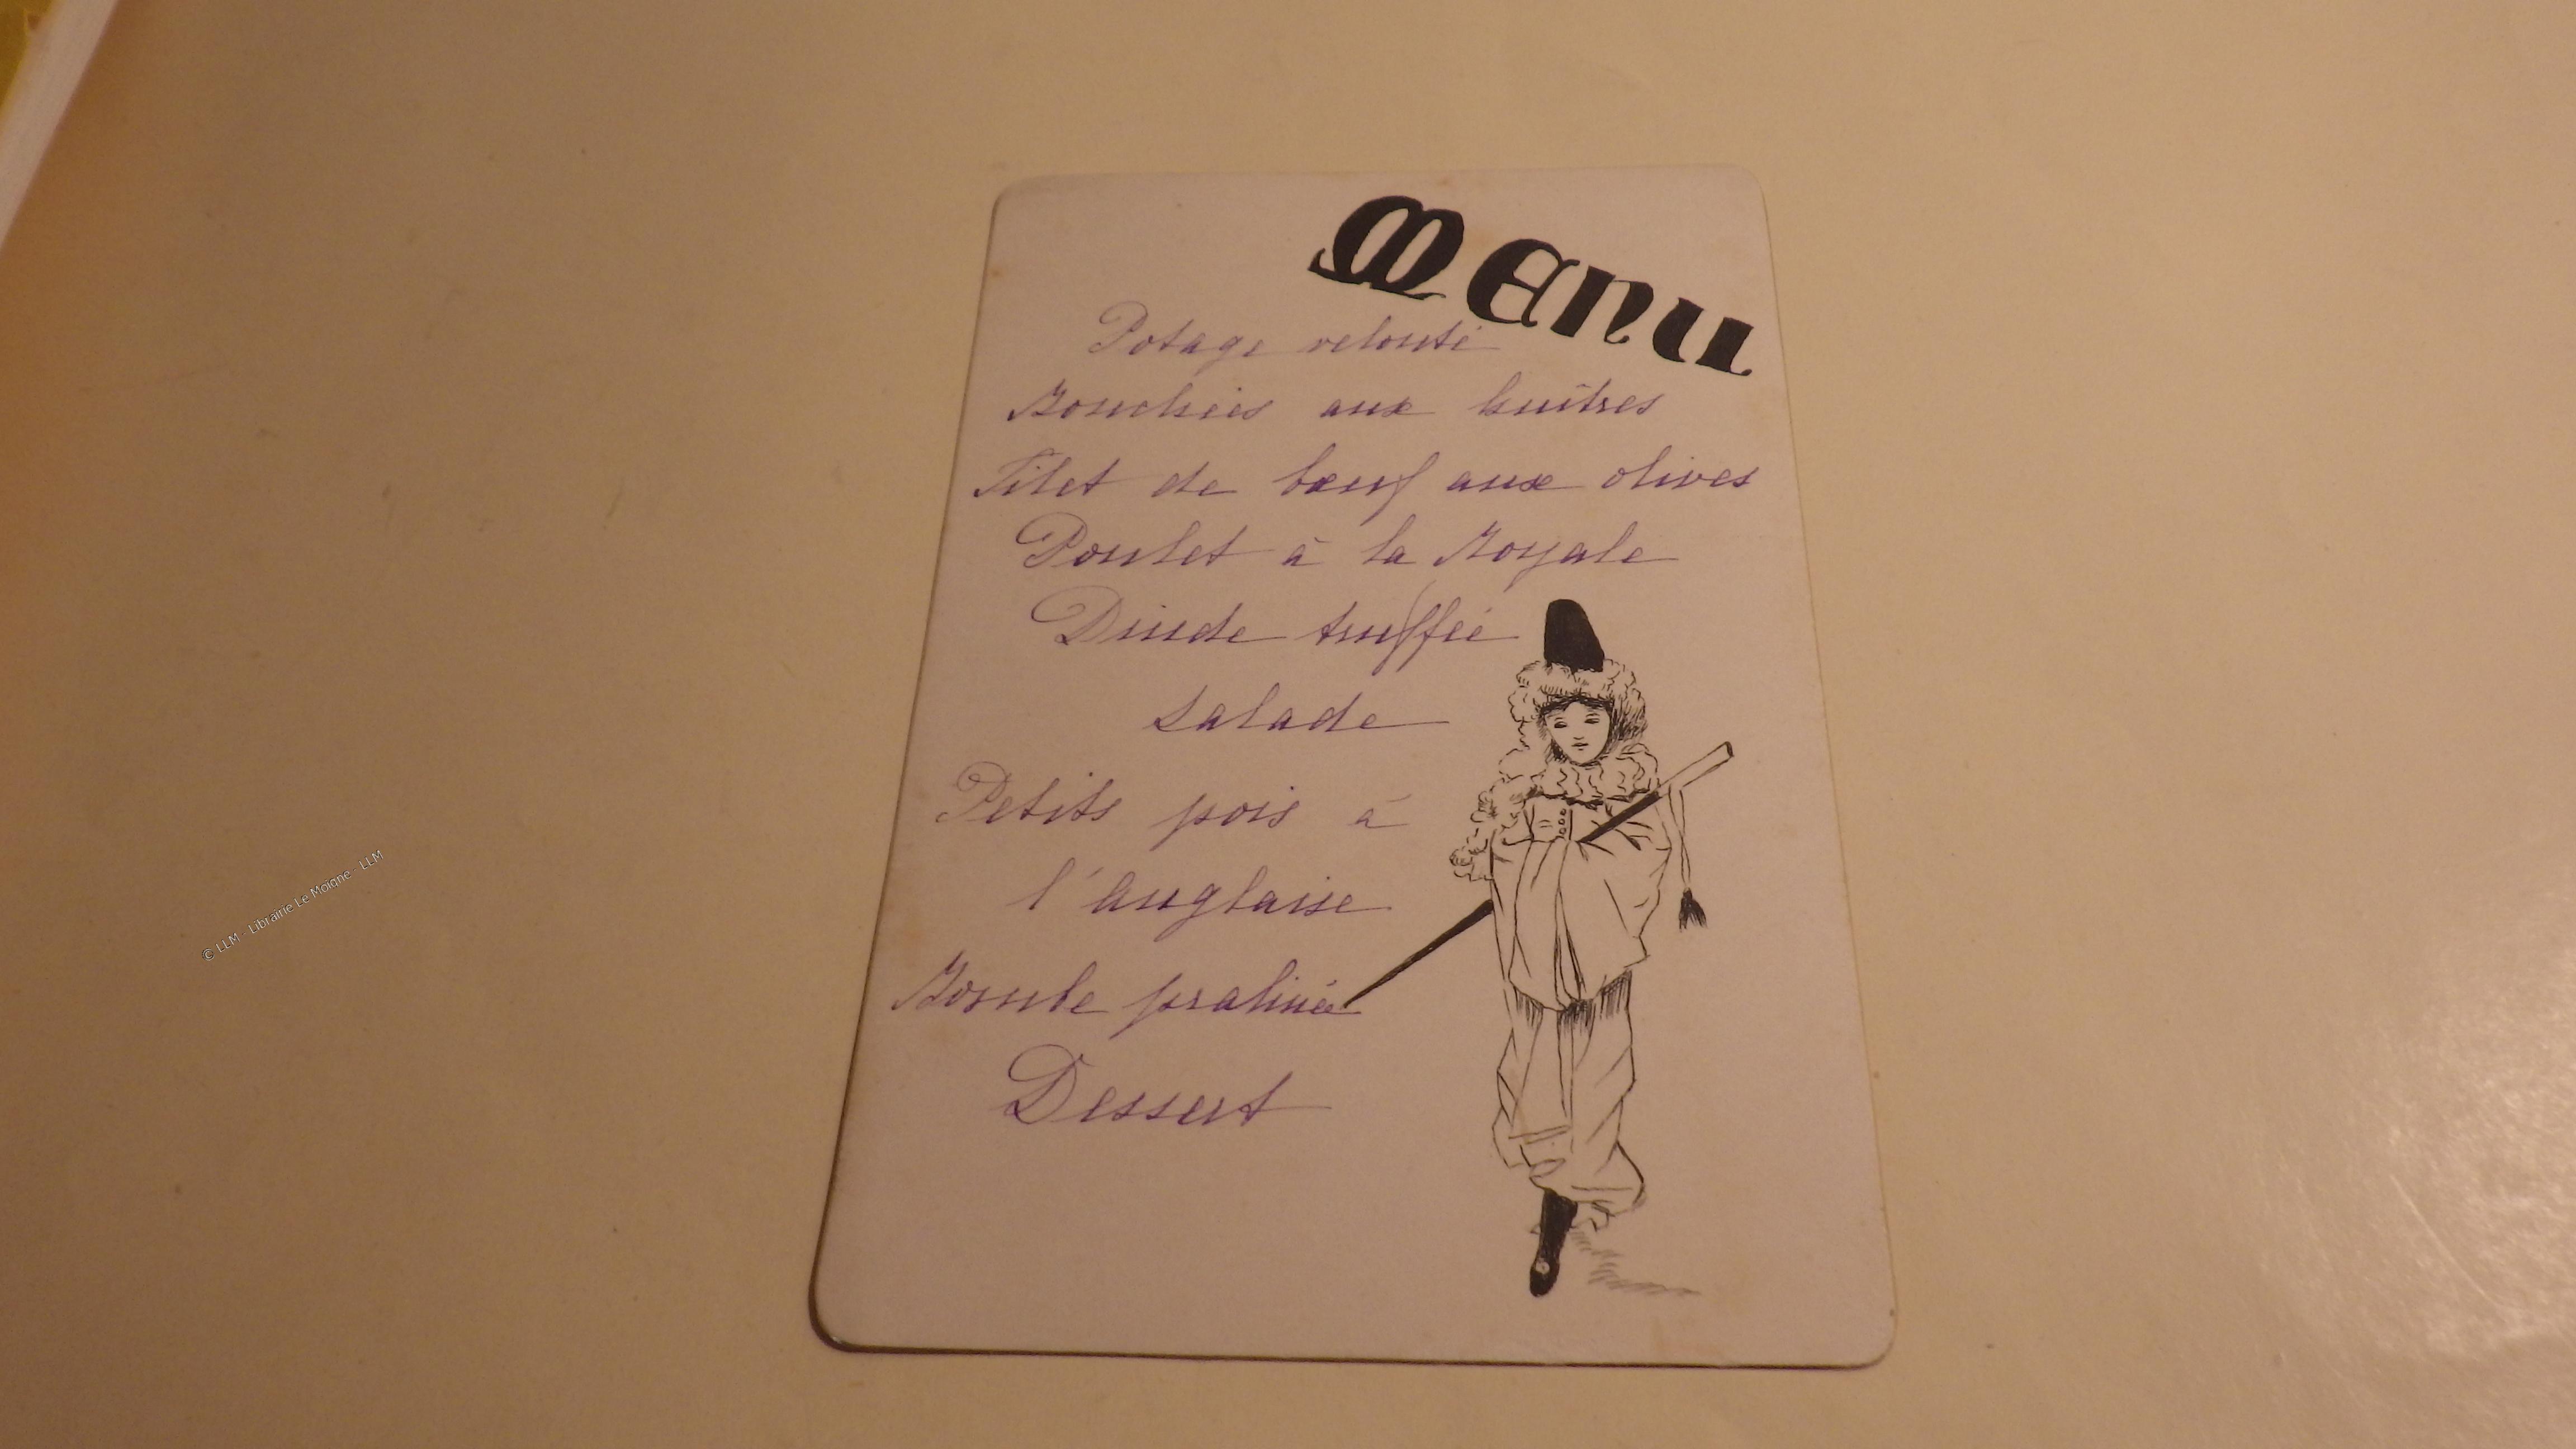 Menu
Potage velouté
Bouchées aux huîtres
Filet de bœuf aux olives
Poulet à la Royale
Dinde truffée
Salade
Petits pois à
l'Anglaise
Bombe pralinée
Dessert
© LLM - Librairie Le Moigne - LLM